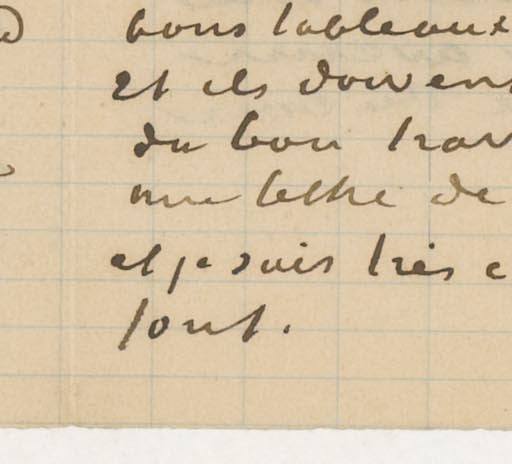 bons tableaux
Et ils doivent
du bon trav
une lettre de
et je suis très c
font.